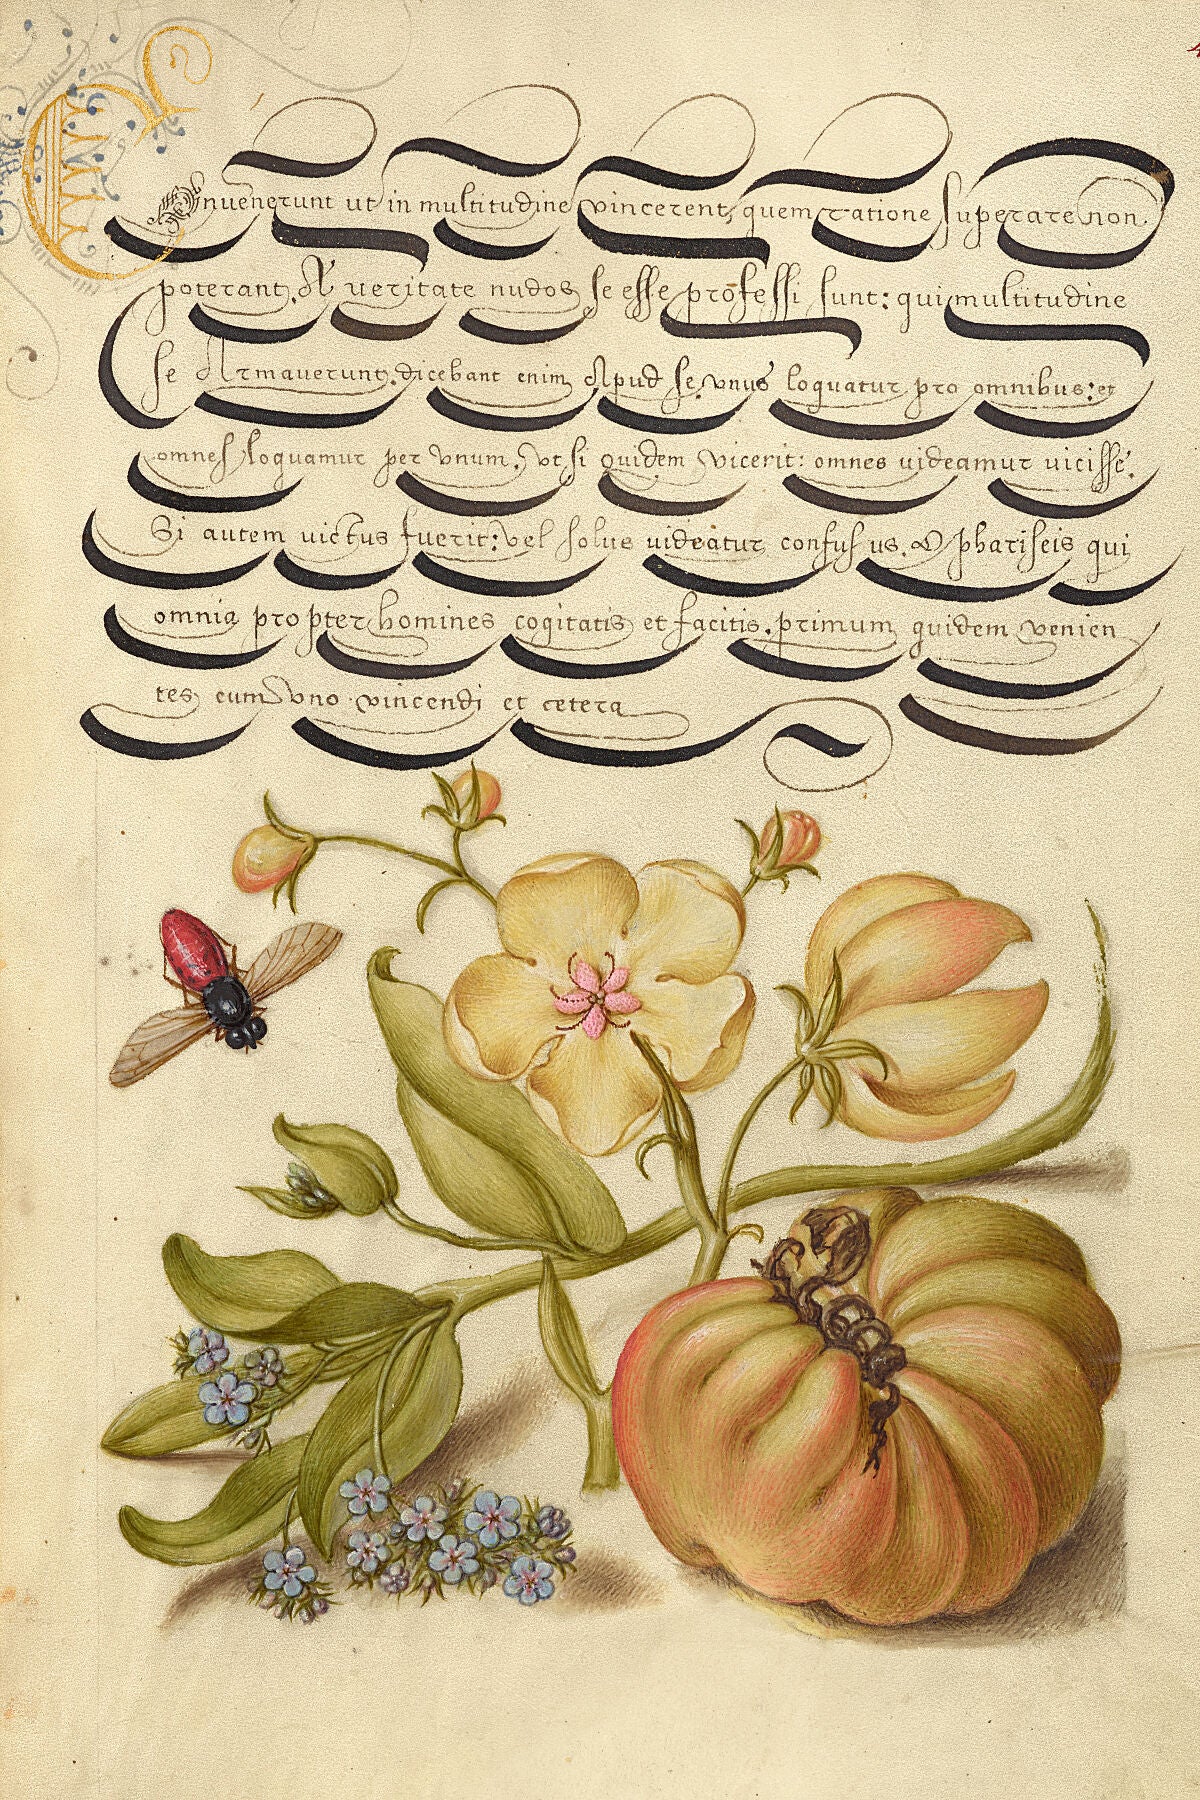 Convenerunt ut in multitudine vincerent, quem ratione superare non
poterant. A veritate nudos se esse professi sunt: qui multitudine
se Armaverunt. dicebant enim Apud se. vnus loquatur pro omnibus: et
omnes loquamur per vnum, vt si quidem vicerit: omnes videamur vicisse.
Si autem victus fuerit: vel solus videatur confusus. O phariseis qui
omnia propter homines cogitatis et facitis. primum quidem venien
tes cum vno vincendi et cetera